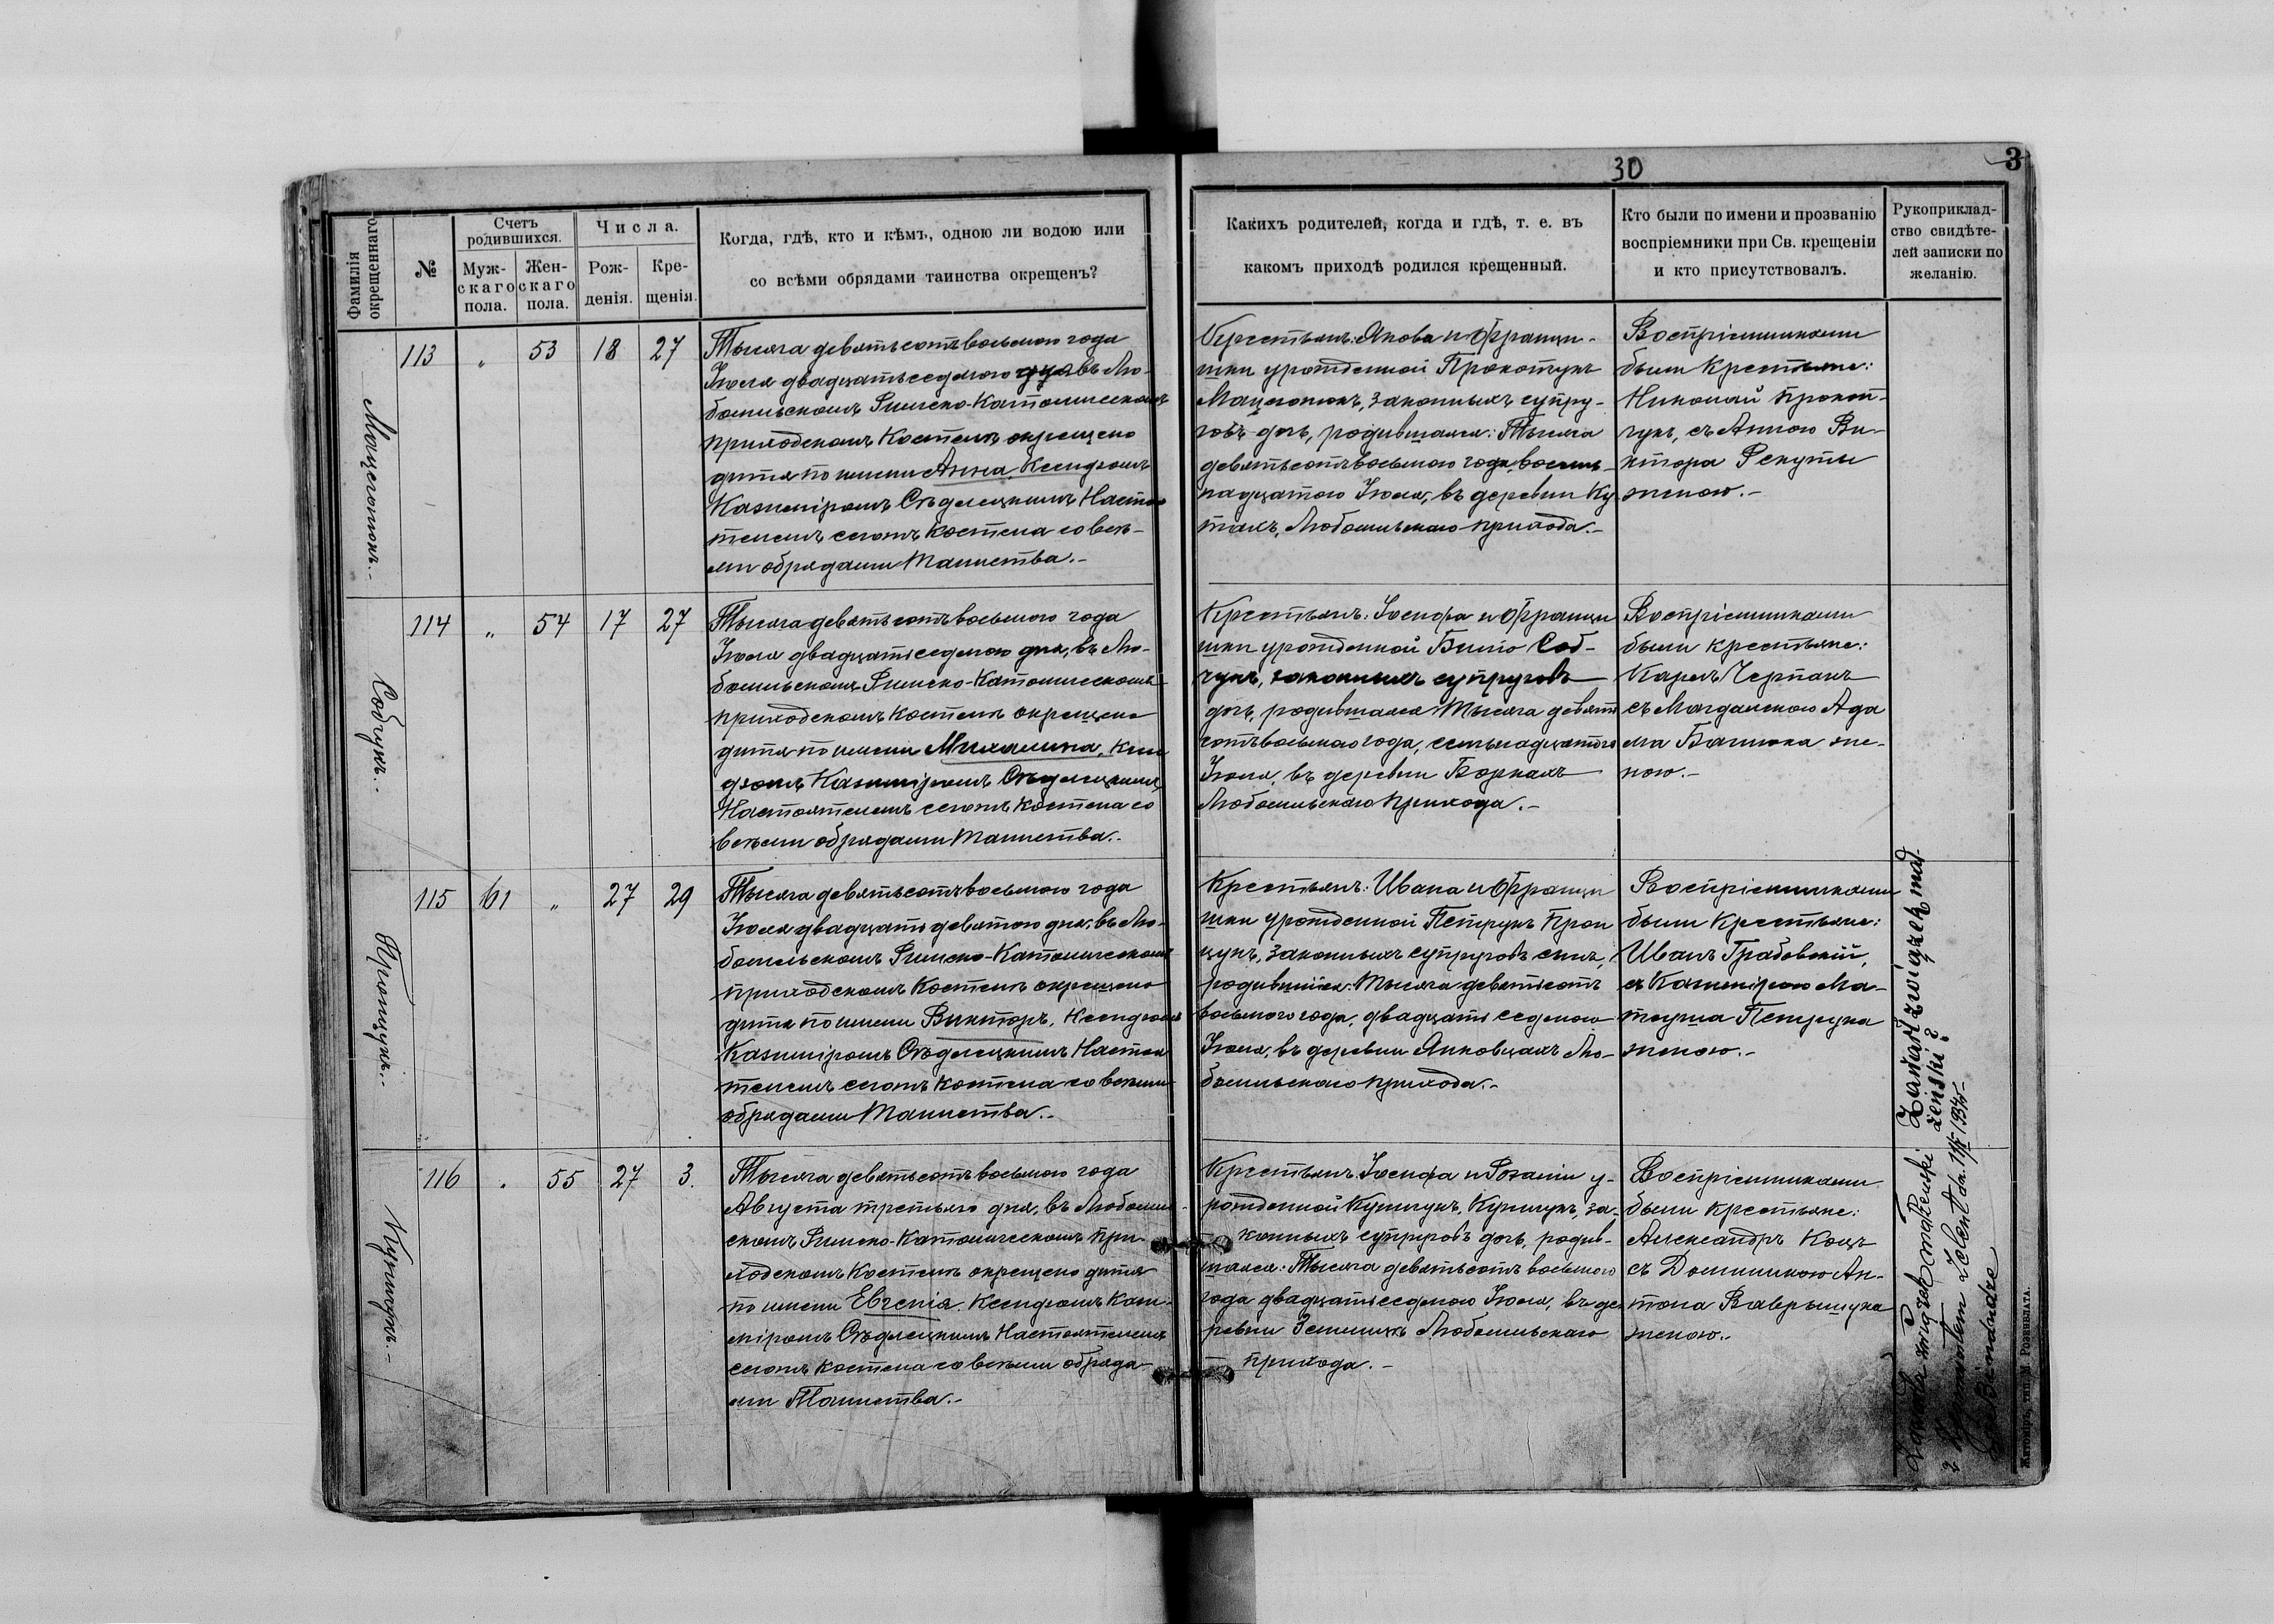 30
3
Фамилія окрещеннаго
№
Счетъ родившихся.
Муж-скаго пола.
Жен-скаго пола.
Числа.
Рож-денія.
Кре-щенія.
Когда, гдѣ, кто и кѣмъ, одною ли водою или
со всѣми обрядами таинства окрещенъ?
Какихъ родителей, когда и гдѣ, т. е. въ
какомъ приходѣ родился крещенный.
Кто были по имени и прозванію
воспріемники при Св. крещеніи
и кто присутствовалъ.
Рукоприклад-
ство свидѣте-
лей записки по
желанію.
113 " 53 18 27
Тысяча девятьсотъ восьмого года
Іюля двадцать седьмого дня въ Лю-
бомльскомъ Римско-Католическомъ
приходскомъ Костелѣ окрещено
дитя по имени Анна, Ксендзомъ
Казиміромъ Сѣдлецкимъ Настоя
телемъ сегожъ Костела со всѣ-
ми обрядами Таинства.-
Крестьянъ: Якова и Францы-
шки урожденной Прокопчукъ
законныхъ супру-
говъ дочь, родившаяся: Тысяча
девятьсотъ восьмого года восем-
надцатого Іюля, въ деревни Ку
тахъ, Любомльскаго прихода.-
Воспріемниками
были Крестьяне:
Николай Прокоп-
чукъ, съ Анною Ви-
ктора Рекуты
женою.-
114 " 54 17 27
Собчукъ.-
Тысяча девятьсотъ восьмого года
Іюля двадцать седьмого дня, въ Лю-
бомльскомъ Римско-Католическомъ
приходскомъ Костелѣ окрещено
дитя по имени Михалина, Ксен
дзомъ Казиміромъ Сѣдлецкимъ
Настоятелемъ сегожъ Костела со
всѣми обрядами Таинства.-
Крестьянъ: Іосифа и Францы
шки урожденной Соб-
чукъ, законныхъ супруговъ
дочь, родившаяся Тысяча девять
сотъ восьмаго года, семьнадцатого
Іюля, въ деревни Боркахъ
Любомльскаго прихода.-
Воспріемниками
были крестьяне:
Карлъ
съ Магдаленою Ада
ма же-
ною.-
115 61 " 27 29
Процукъ.-
Тысяча девятьсотъ восьмого года
Іюля двадцать девятого дня, въ Лю-
бомльскомъ Римско-Католическомъ
приходскомъ Костелѣ окрещено
дитя по имени Викторъ, Ксендзомъ
Казиміромъ Сѣдлецкимъ Настоя
телемъ сегожъ Костела со всѣми
обрядами Таинства.-
Крестьянъ: Ивана и Францы
шки урожденной Петрукъ Про
цукъ, законныхъ супруговъ сынъ,
родившійся: Тысяча девятьсотъ
восьмого года, двадцать седьмого
Іюля, въ деревни Янковцахъ Лю-
бомльскаго прихода.-
Воспріемниками
были Крестьяне:
Иванъ Грабовскій,
съ Казимірою Ма-
Петрука
женою.-
116 . 55 27 3.
Тысяча девятьсотъ восьмого года
Августа третьяго дня, въ Любомль-
скомъ Римско-Католическомъ при-
ходскомъ Костелѣ окрещено дитя
по имени Евгенія, Ксендзомъ Кази-
міромъ Сѣдлецкимъ Настоятелемъ
сегожъ Костела со всѣми обряда-
ми Таинства.-
Крестьянъ: Іосифа и Розаліи у-
рожденной за-
конныхъ супруговъ дочь, родив-
шаяся: Тысяча девятьсотъ восьмого
года двадцать седьмого Іюля, въ де
ревни Любомльскаго
прихода.-
Воспріемниками
были Крестьяне:
Александръ Коцъ
съ Доминикою Ан-
тона
женою.-
Zawarł związek małżeński
z
1934
Житоміръ, тип. М. Розенблата.